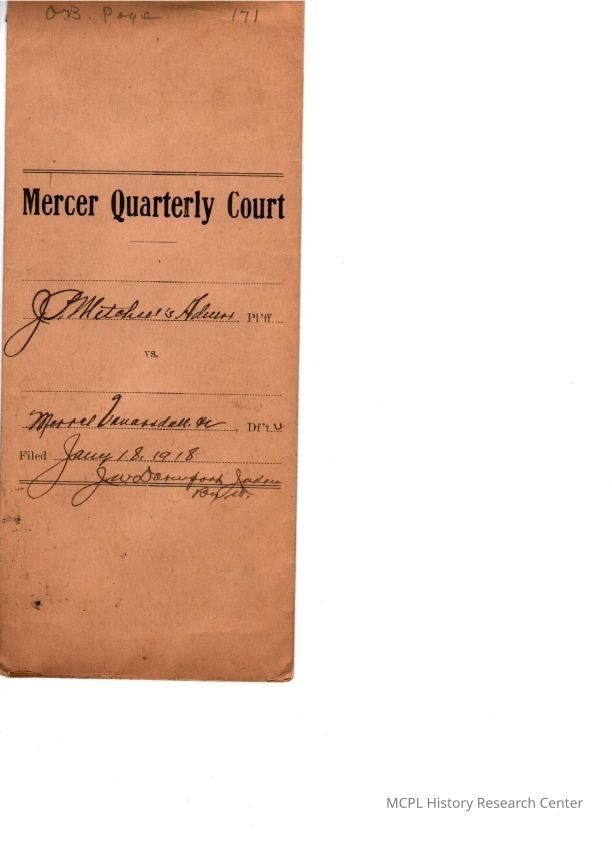 O.B. Page 171
Mercer Quarterly Court
J. P. Mitchell's Admrs, Pl'ff.
vs.
Merrel Vanarsdall, &c, Df't.
Filed Jany 18, 1918
J W Davenport Judge
By
MCPL History Research Center